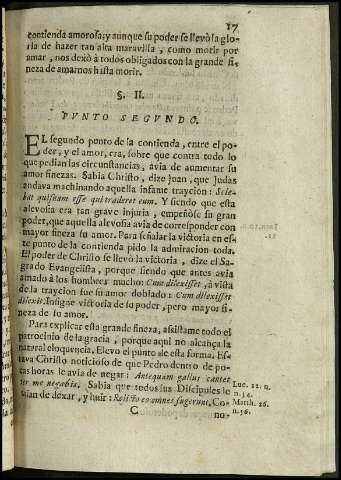 17
contienda amorosa; y aunque su poder se llevò la glo-
ria de hazer tan alta maravilla, como morir por
amar, nos dexò à todos obligados con la grande fi-
neza de amarnos hasta morir.
§. II.
PVNTO SEGVNDO.
EL segundo punto de la contienda, entre el po-
der, y el amor, era, sobre que contra todo lo
que pedian las circunstancias, avia de aumentar su
amor finezas. Sabia Christo, dize Juan, que Judas
andava machinando aquella infame trayciòn: Scie-
bat quisnam esset qui traderet eum. Y siendo que esta
alevosia era tan grave injuria, empeñòse su gran
poder, que aquella alevosia avia de corresponder con
mayor fineza su amor. Para señalar la victoria en es-
te punto de la contienda pido la admiracion toda.
El poder de Christo se llevò la victoria, dize el Sa-
grado Evangelista, porque siendo que antes avia
amado à los hombres mucho: Cum dilexisset, à vista
de la traycion fue su amor doblado: Cum dilexisset
dilexit. Insigne victoria de su poder, pero mayor fi-
neza de su amor.
Para explicar esta grande fineza, assistame todo el
patrocinio de la gracia, porque aqui no alcança la
natural eloquencia. Elevo el punto de esta forma. Es-
tava Christo noticioso de que Pedro dentro de po-
cas horas le avia de negar: Antequam gallus cantet
ter me negabis. Sabia que todos sus Discipulos lo
avian de dexar, y huir: Relicto eo omnes fugerunt. Co-
Luc. 22. n.
n. 34.
Matth. 26.
n. 56.
C
no-